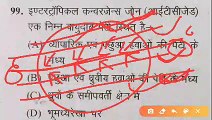 99. इण्टरट्रॉपिकल कन्वरजेन्स जोन (आईटीसीजेड)
एक निम्न वायुदाब स्थित है-
(A) व्यापारिक एवं पछुआ हवाओं की पेटी के
मध्य
(B) पछुआ एवं ध्रुवीय हवाओं की पेटी के मध्य
(C) ध्रुवों के समीपवर्ती क्षेत्र में
(D) भूमध्यरेखा पर